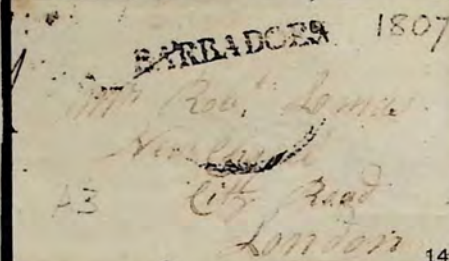 BARBADOES 1807
Mr Robt. Lomas
A3 City Road
London
14